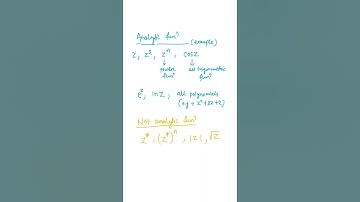 Analytic fun?
(example)
z, z², zⁿ, cosz
↓ ↓
power all trigonometric
fun? fun?
eᶻ, lnz, all polynomials
Not analytic fun?
z*, (z*)ⁿ, |z|, √z